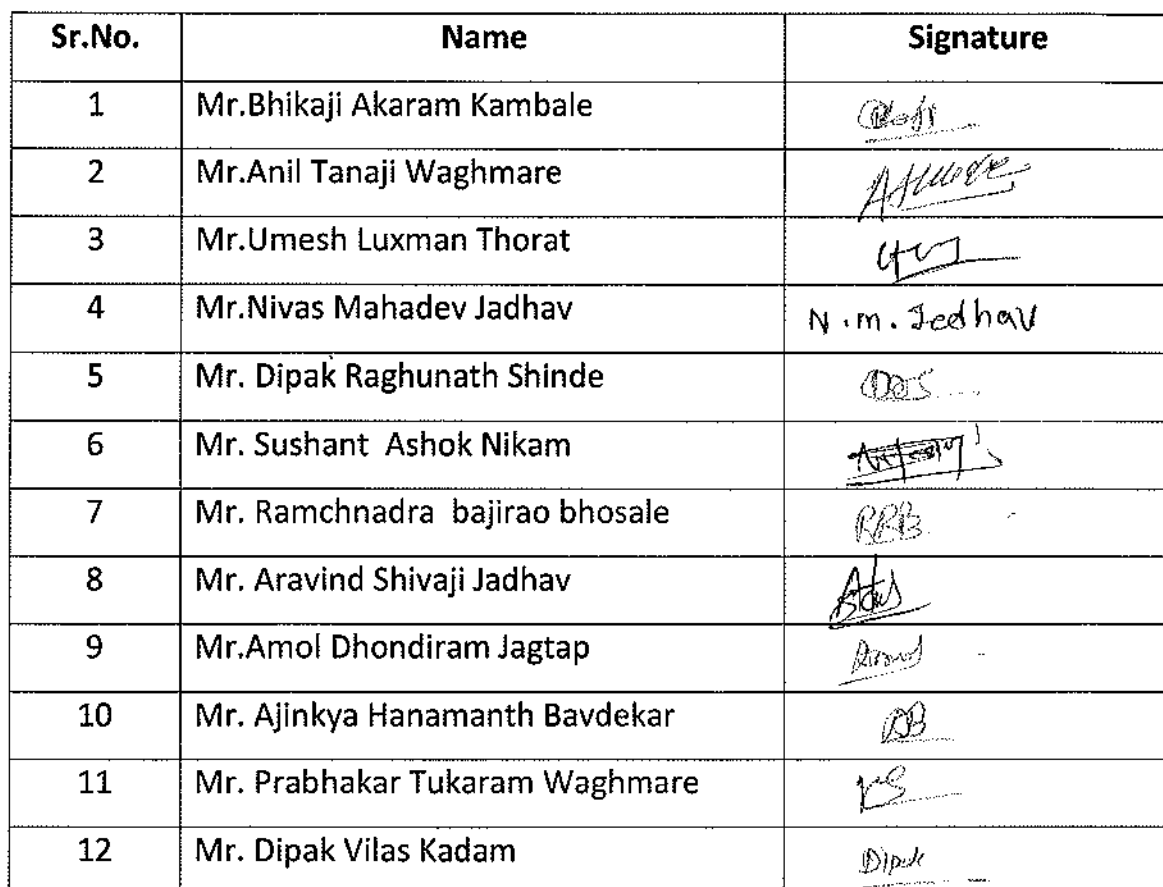 Sr.No. Name Signature
1 Mr.Bhikaji Akaram Kambale
2 Mr.Anil Tanaji Waghmare
3 Mr.Umesh Luxman Thorat
4 Mr.Nivas Mahadev Jadhav N.m. Jadhav
5 Mr. Dipak Raghunath Shinde
6 Mr. Sushant Ashok Nikam
7 Mr. Ramchnadra bajirao bhosale RRB
8 Mr. Aravind Shivaji Jadhav
9 Mr.Amol Dhondiram Jagtap
10 Mr. Ajinkya Hanamanth Bavdekar AB
11 Mr. Prabhakar Tukaram Waghmare
12 Mr. Dipak Vilas Kadam Dipak